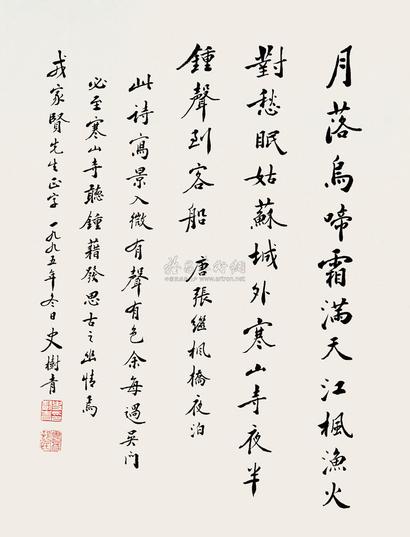 月落烏啼霜滿天江楓漁火
對愁眠姑蘇城外寒山寺夜半
鍾聲到客船 唐張繼楓橋夜泊
此詩寫景入微有聲有色余每過吳門
必至寒山寺聽鍾藉發思古之幽情焉
戎家賢先生正字 一九九五年冬日 史樹青